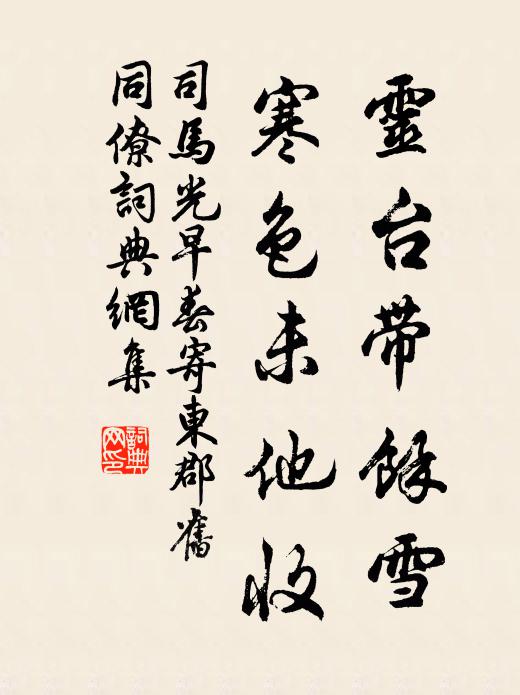 靈台帶餘雪
寒色未他收
司馬光早春寄東郡舊
同僚詞典網集
詞典
网印